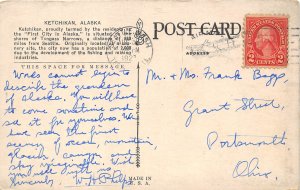 KETCHIKAN, ALASKA
Ketchikan, proudly termed by the residents as
the "First City in Alaska", is situated on the
shores of Tongass Narrows, a distance of 660
miles from Seattle. Originally located as a fish-
ery site, the city now has a population of
due to the development of the fishing and mining
industries.
THIS SPACE FOR MESSAGE
Words cannot begin to
describe the grandeur
of Alaska. You will have
to come sometime and
see it for yourselves. We
had seen the finest
scenery of ocean, mountain
glaciers,
sky imaginable.
POST CARD
ADDRESS
CENTS 2 CENTS
Mr. & Mrs. Frank Bapp,
Grant Street,
Portsmouth
Ohio.
MADE IN
U. S. A.